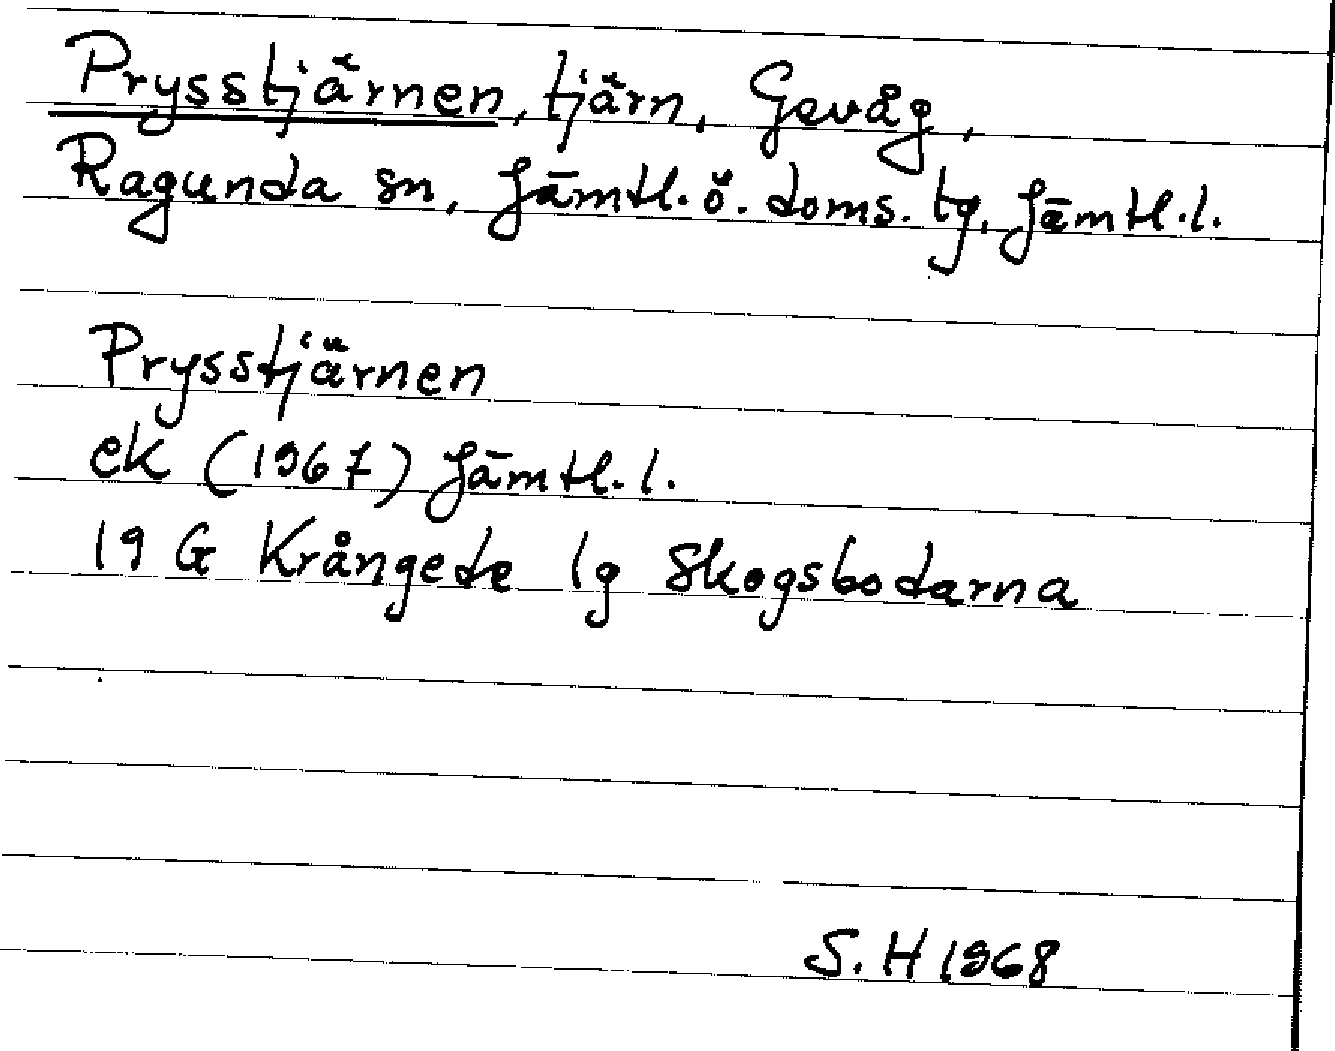 Prysstjärnen, tjärn, Gevåg,
Ragunda sn, Jämtl. ö. doms. tg, Jämtl. l.
Prysstjärnen
ek (1967) Jämtl. l.
19 G Krångede 1g Skogsbodarna
S. H 1968